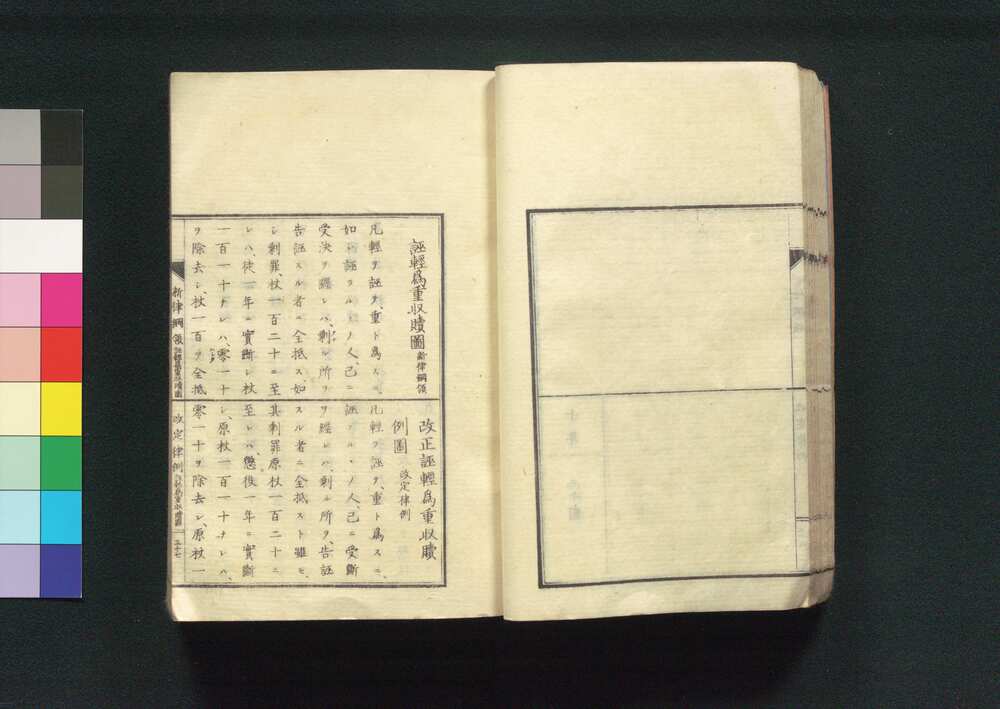 誣輕爲重収贖圖 新律綱領
凡輕ヲ誣テ、重ト爲スニ、
如シ誣ラルヽノ人、已ニ
受決ヲ經レハ、剰ル所ヲ
告誣スル者ニ全抵ス、如
シ剰罪、杖一百二十ニ至
レハ、徒一年ニ實斷シ、杖
一百一十ナレハ、零一十
ヲ除去シ、杖一百ヲ全抵
改正誣輕爲重収贖
例圖 改定律例
凡輕ヲ誣テ、重ト爲スニ、
誣ラルヽノ人、已ニ受斷
ヲ經レハ、剰ル所ヲ、告誣
スル者ニ全抵スト雖モ、
其剰罪原杖一百二十ニ
至レハ、懲役一年ニ實斷
シ、原杖一百一十ナレハ、
零一十ヲ除去シ、原杖一
新律綱領 誣輕爲重収贖圖
改定律例